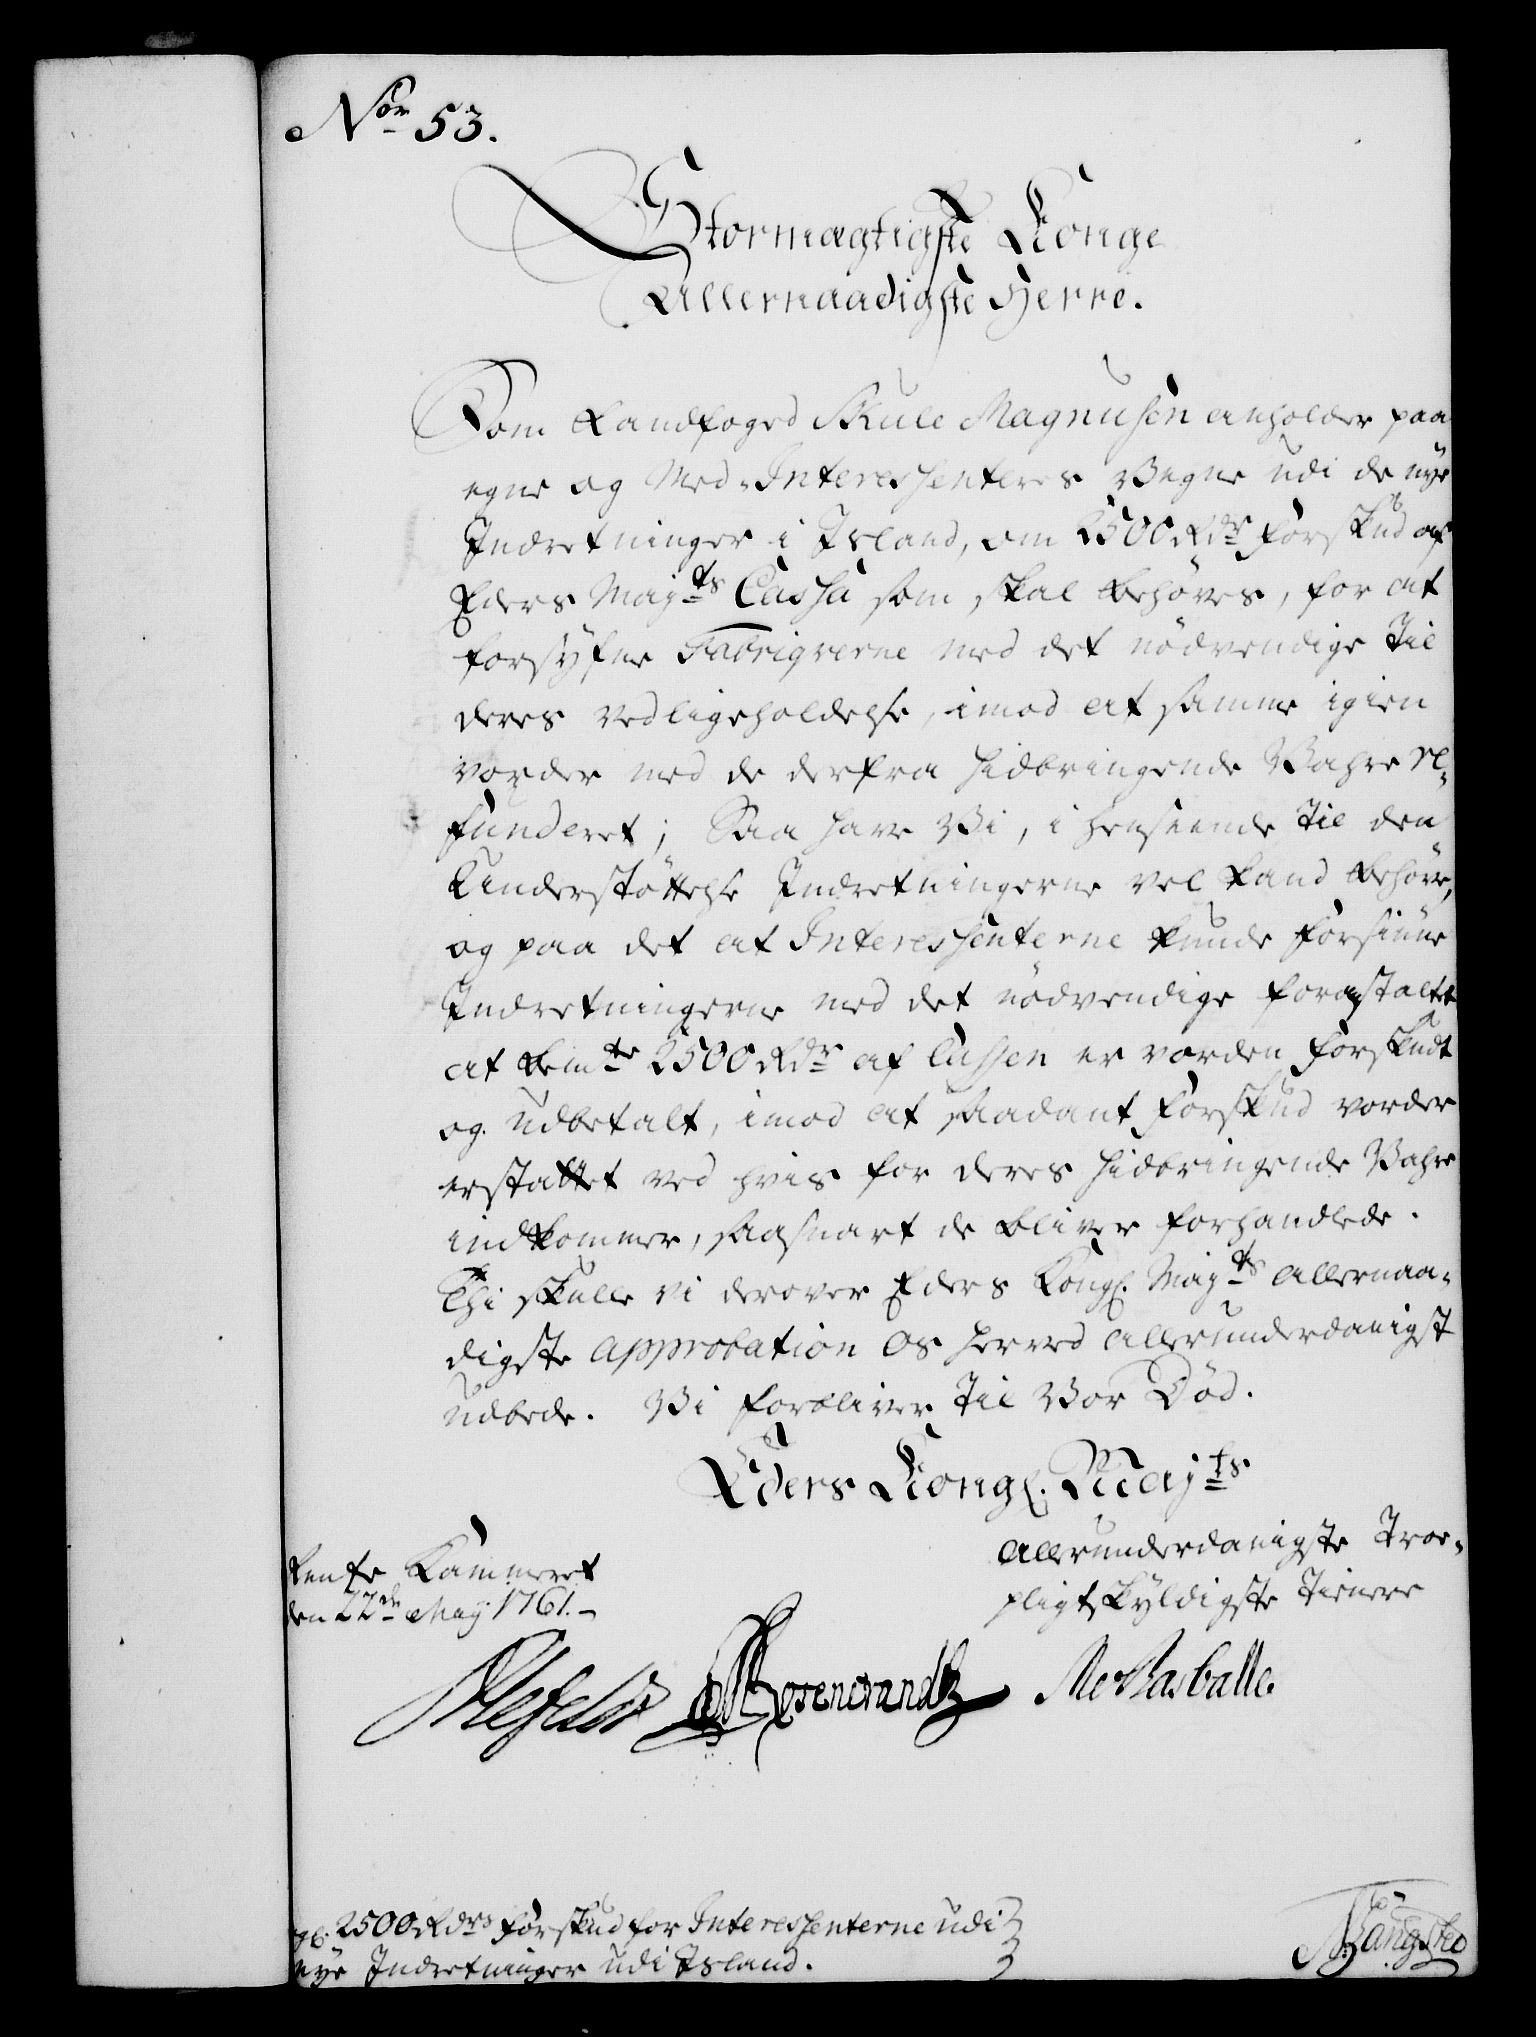 Nor 53.
Stormægtigste Konge
Allernaadigste Herre.
Som Landfoged Skule Magnusen anholder paa
egne og Med-Interessenteres Vegne udi de nye
Indretninger i Island, om 2500 Rdr Forskud af
Eders Mayts Cassa som skal behöves, for at
forsyfne Fabriqverne med det nödvendige til
deres vedligeholdelse, imod at samme igien
vorder med de derfra hidbringende Vahre re-
funderet; Saa have Vi, i henseende til den
Understöttelse Indretningerne vel kand behöve,
og paa det at Interessenterne kunde forsiune
Indretningerne med det nödvendige foranstaltet
at bemte 2500 Rdr af Cassen er vorden forskudt
og udbetalt, imod at saadant Forskud vorder
erstattet ved hvis for deres hidbringende Vahre
indkommer, saasnart de bliver forhandlede.
Thi skulle vi derover Eders Kongl. Mayts allernaa-
digste approbation os herved allerunderdanigst
udbede. Vi forbliver til Vor Död.
Eders Kongl. Mayts
allerunderdanigste Troe-
pligtskyldigste Tienere
Rente Kammeret
den 22de May 1761.
Ahlefeldt Rosencrandtz Rasballe.
2500 Rdrs Forskud for Interessenterne udi
nye Indretninger udi Island.